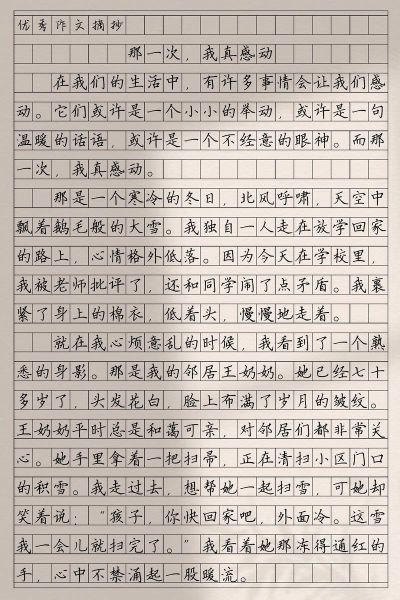 优秀作文摘抄
那一次，我真感动
在我们的生活中，有许多事情会让我们感
动。它们或许是一个小小的举动，或许是一句
温暖的话语，或许是一个不经意的眼神。而那
一次，我真感动。
那是一个寒冷的冬日，北风呼啸，天空中
飘着鹅毛般的大雪。我独自一人走在放学回家
的路上，心情格外低落。因为今天在学校里，
我被老师批评了，还和同学闹了点矛盾。我裹
紧了身上的棉衣，低着头，慢慢地走着。
就在我心烦意乱的时候，我看到了一个熟
悉的身影。那是我的邻居王奶奶。她已经七十
多岁了，头发花白，脸上布满了岁月的皱纹。
王奶奶平时总是和蔼可亲，对邻居们都非常关
心。她手里拿着一把扫帚，正在清扫小区门口
的积雪。我走过去，想帮她一起扫雪，可她却
笑着说：“孩子，你快回家吧，外面冷。这雪
我一会儿就扫完了。”我看着她那冻得通红的
手，心中不禁涌起一股暖流。